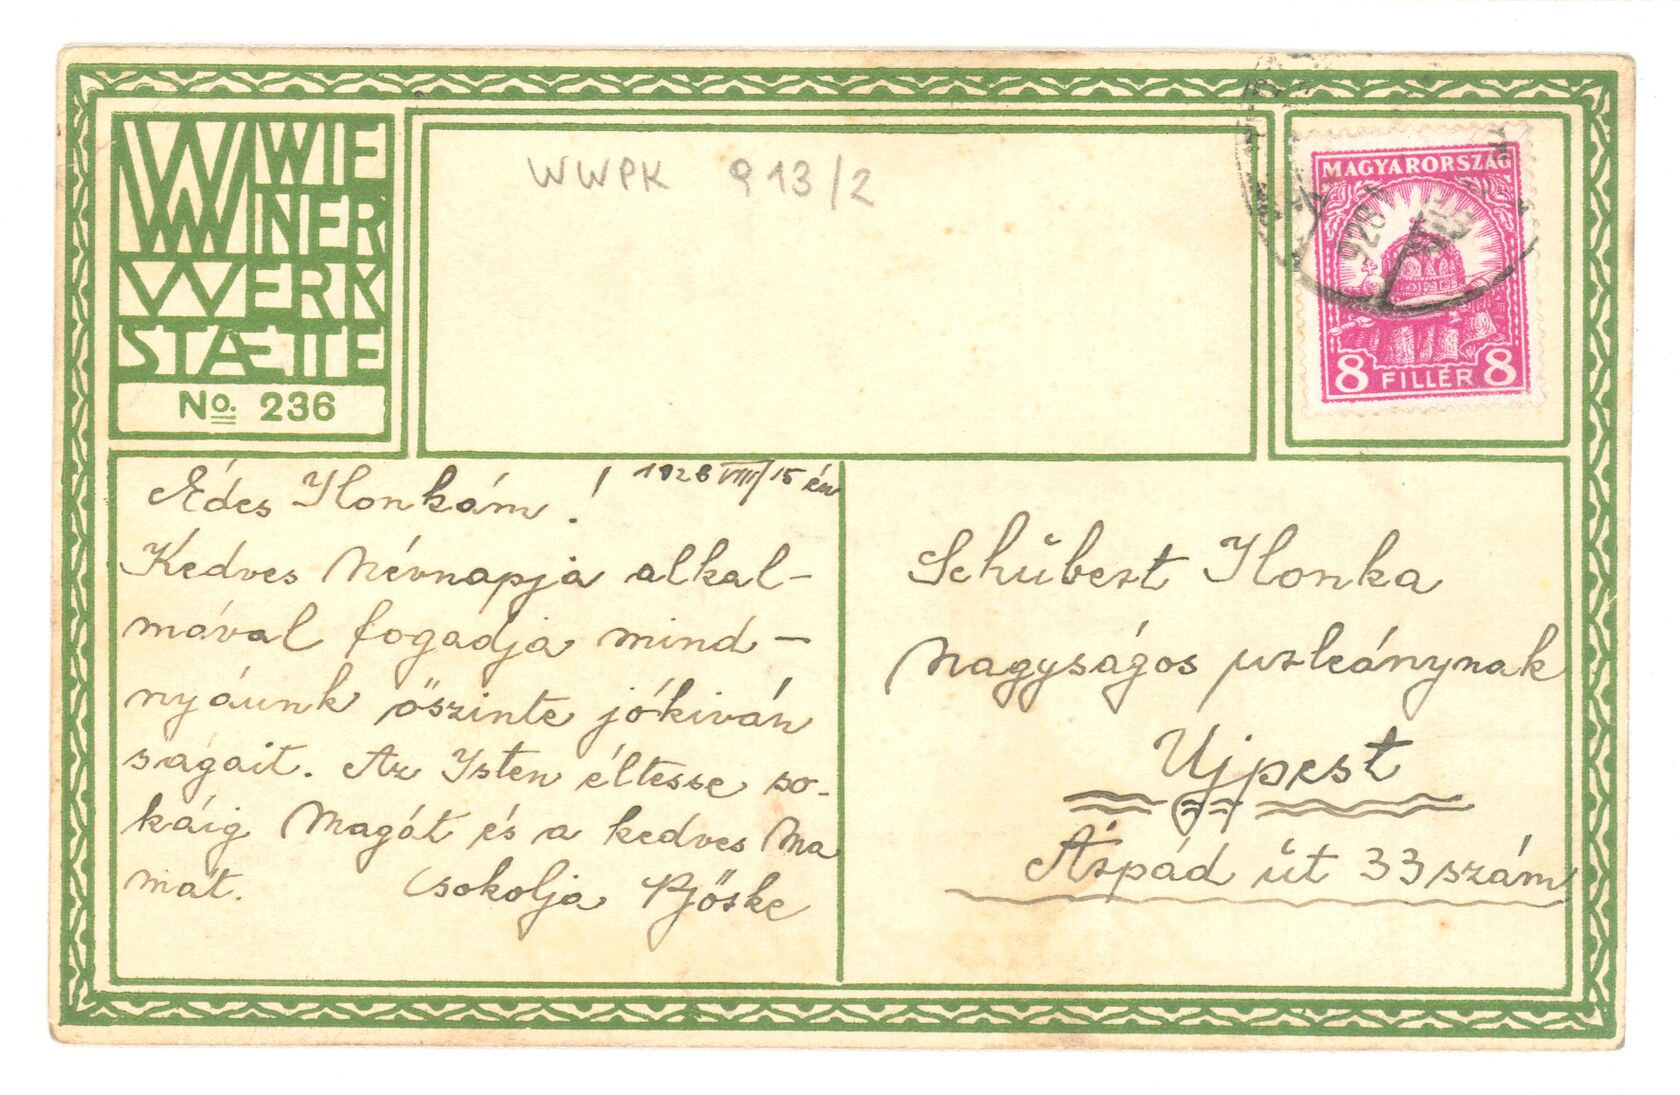 WIE
NER
WERK
STÆTTE
No. 236
WWPK 913/2
MAGYARORSZÁG
8 FILLÉR 8
928
1928 VIII/15 én
Édes Ilonkám!
Kedves Névnapja alkal-
mával fogadja mind-
nyáunk őszinte jókiván
ságait. Az Isten éltesse so-
káig Magát és a kedves Ma
mát. Csokolja Pjőske
Schűbert Ilonka
Nagyságos urleánynak
Ujpest
Árpád út 33 szám